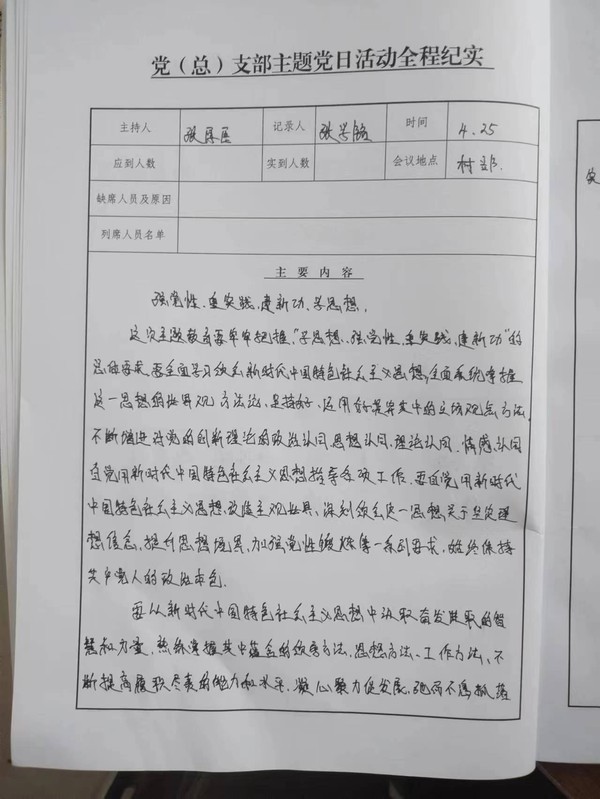 党（总）支部主题党日活动全程纪实
主持人 张 记录人 张学铭 时间 4.25
应到人数 实到人数 会议地点 村部.
缺席人员及原因
列席人员名单
主要内容
强党性、重实践、建新功、学思想，
这次主题教育要牢牢把握，“学思想、强党性、重实践、建新功”的
总体要求，要全面学习领会新时代中国特色社会主义思想，全面系统掌握
这一思想的世界观、方法论，坚持好、运用好贯穿其中的立场观点方法，
不断增进对党的创新理论的政治认同、思想认同、理论认同、情感认同
自觉用新时代中国特色社会主义思想指导各项工作，要自觉用新时代
中国特色社会主义思想，改造主观世界，深刻领会这一思想关于坚定理
想信念，提升思想境界，加强党性锻炼等一系列要求，始终保持
共产党人的政治本色.
要从新时代中国特色社会主义思想中汲取奋发进取的智
慧和力量，熟练掌握其中蕴含的领导方法、思想方法、工作方法、不
断提高履职尽责的能力和水平，凝心聚力促发展，驰而不息抓落